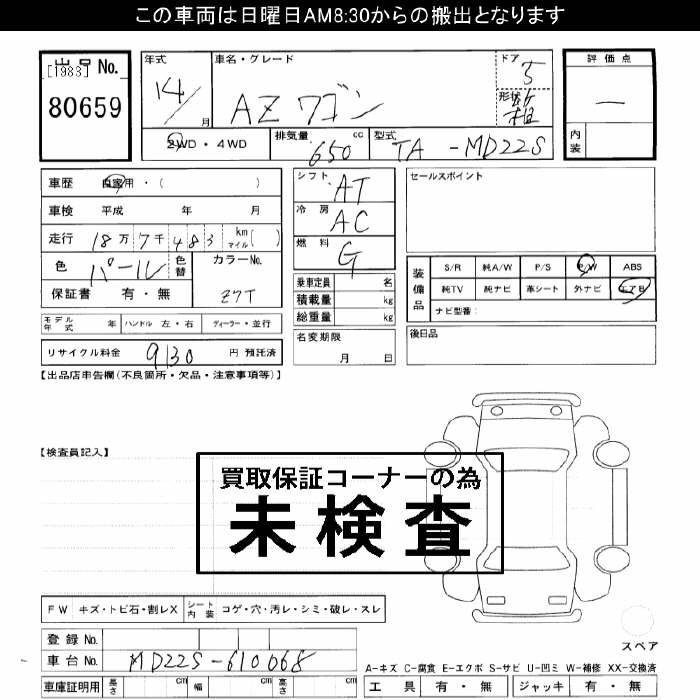 この車両は日曜日AM8:30からの搬出となります
出品 No.
[1983]
80659
年式
14/
月
車名・グレード
AZ ワゴン
ドア
5
形状
軽
評価点
—
内装
2WD・4WD
排気量 650 cc
型式 TA -MD22S
車歴 自家用・( )
車検 平成 年 月
走行 18万7千483 km マイル( )
色 パール 色替 カラーNo. Z7T
保証書 有・無
モデル年式 年 ハンドル 左・右 ディーラー・並行
リサイクル料金 9130 円 預託済
シフト AT
冷房 AC
燃料 G
乗車定員 名
積載量 kg
総重量 kg
名変期限
月 日
セールスポイント
装備品
S/R 純A/W P/S P/W ABS
純TV 純ナビ 革シート 外ナビ エアB
ナビ型番:
後日品
【出品店申告欄(不良箇所・欠品・注意事項等)】
【検査員記入】
買取保証コーナーの為
未検査
FW キズ・トビ石・割レX シート内装 コゲ・穴・汚レ・シミ・破レ・スレ
登録 No.
車台 No. MD22S-610068
車庫証明用 長さ cm 幅 cm 高さ cm
スペア
A-キズ C-腐食 E-エクボ S-サビ U-凹ミ W-補修 XX-交換済
工具 有・無 ジャッキ 有・無